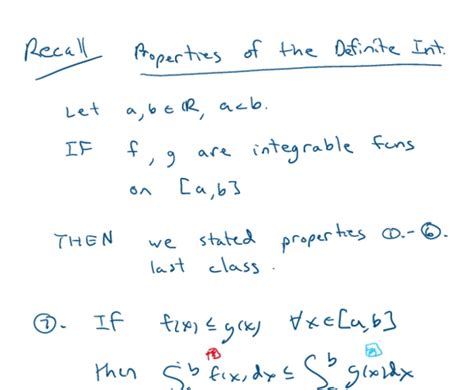 Recall Properties of the Definite Int.
Let a, b ∈ ℝ, a<b.
IF f, g are integrable fcns
on [a,b]
THEN we stated properties ①.-⑥.
last class.
⑦. If f(x) ≤ g(x) ∀x∈[a,b]
then ∫ᵇ f(x)dx ≤ ∫ᵇ g(x)dx